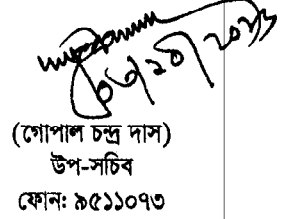 (গোপাল চন্দ্র দাস)
উপ-সচিব
ফোন: ৯৫১১০৭৩